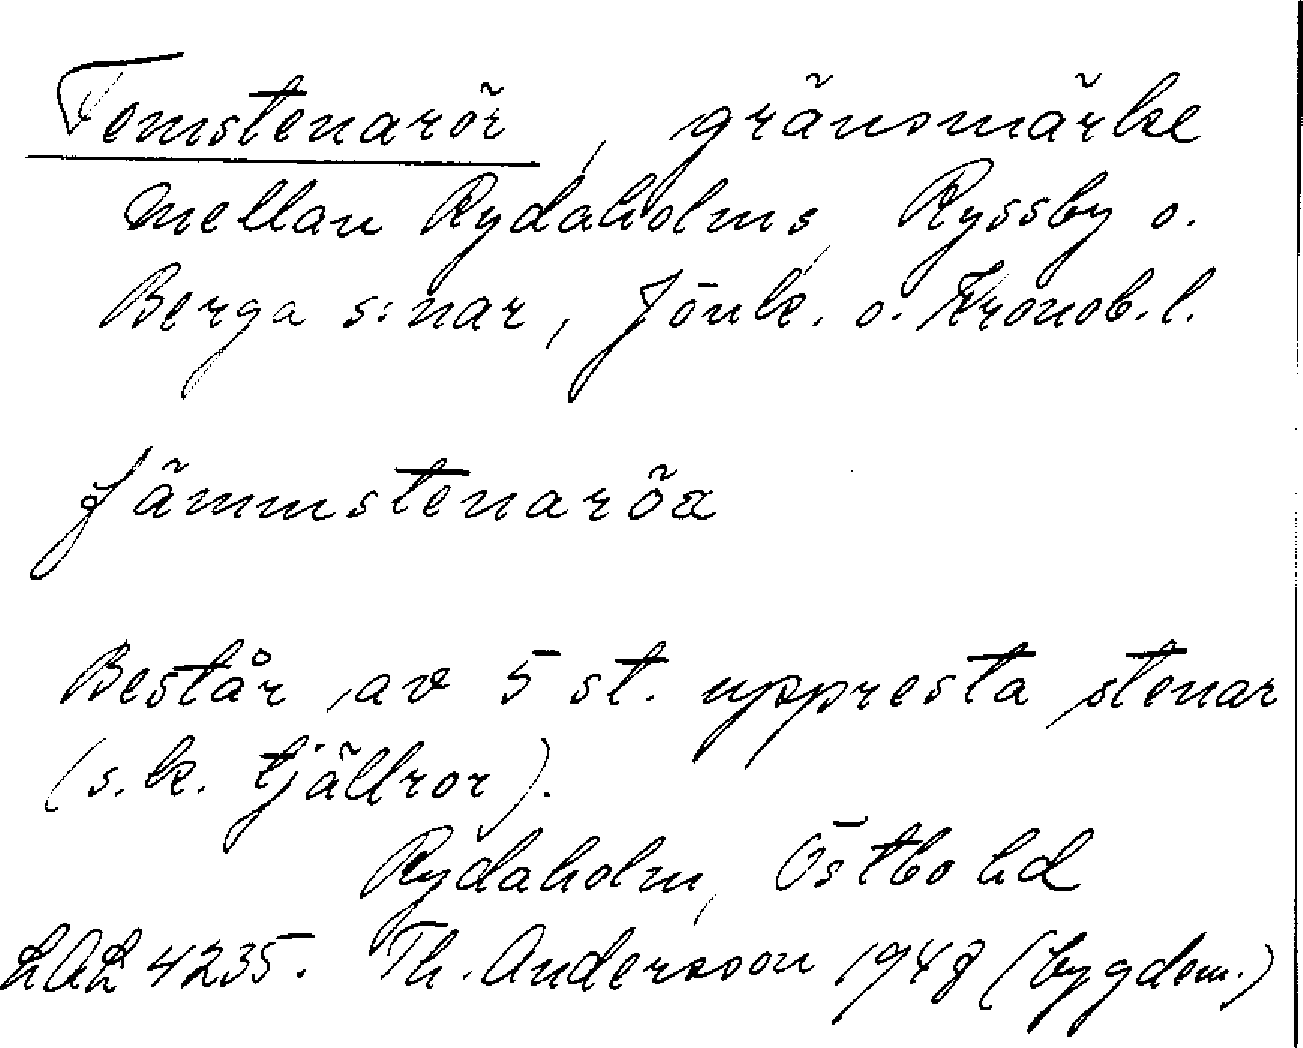 Femstenarör, gränsmärke
mellan Rydaholms, Ryssby o.
Berga s:nar, Jönk. o. Kronob. l.
fämmstenaröa
Består av 5 st. uppresta stenar
(s.k. tjällror).
Rydaholm, Östbo hd
LAL 4235. Th. Andersson 1948 (bygdem.)